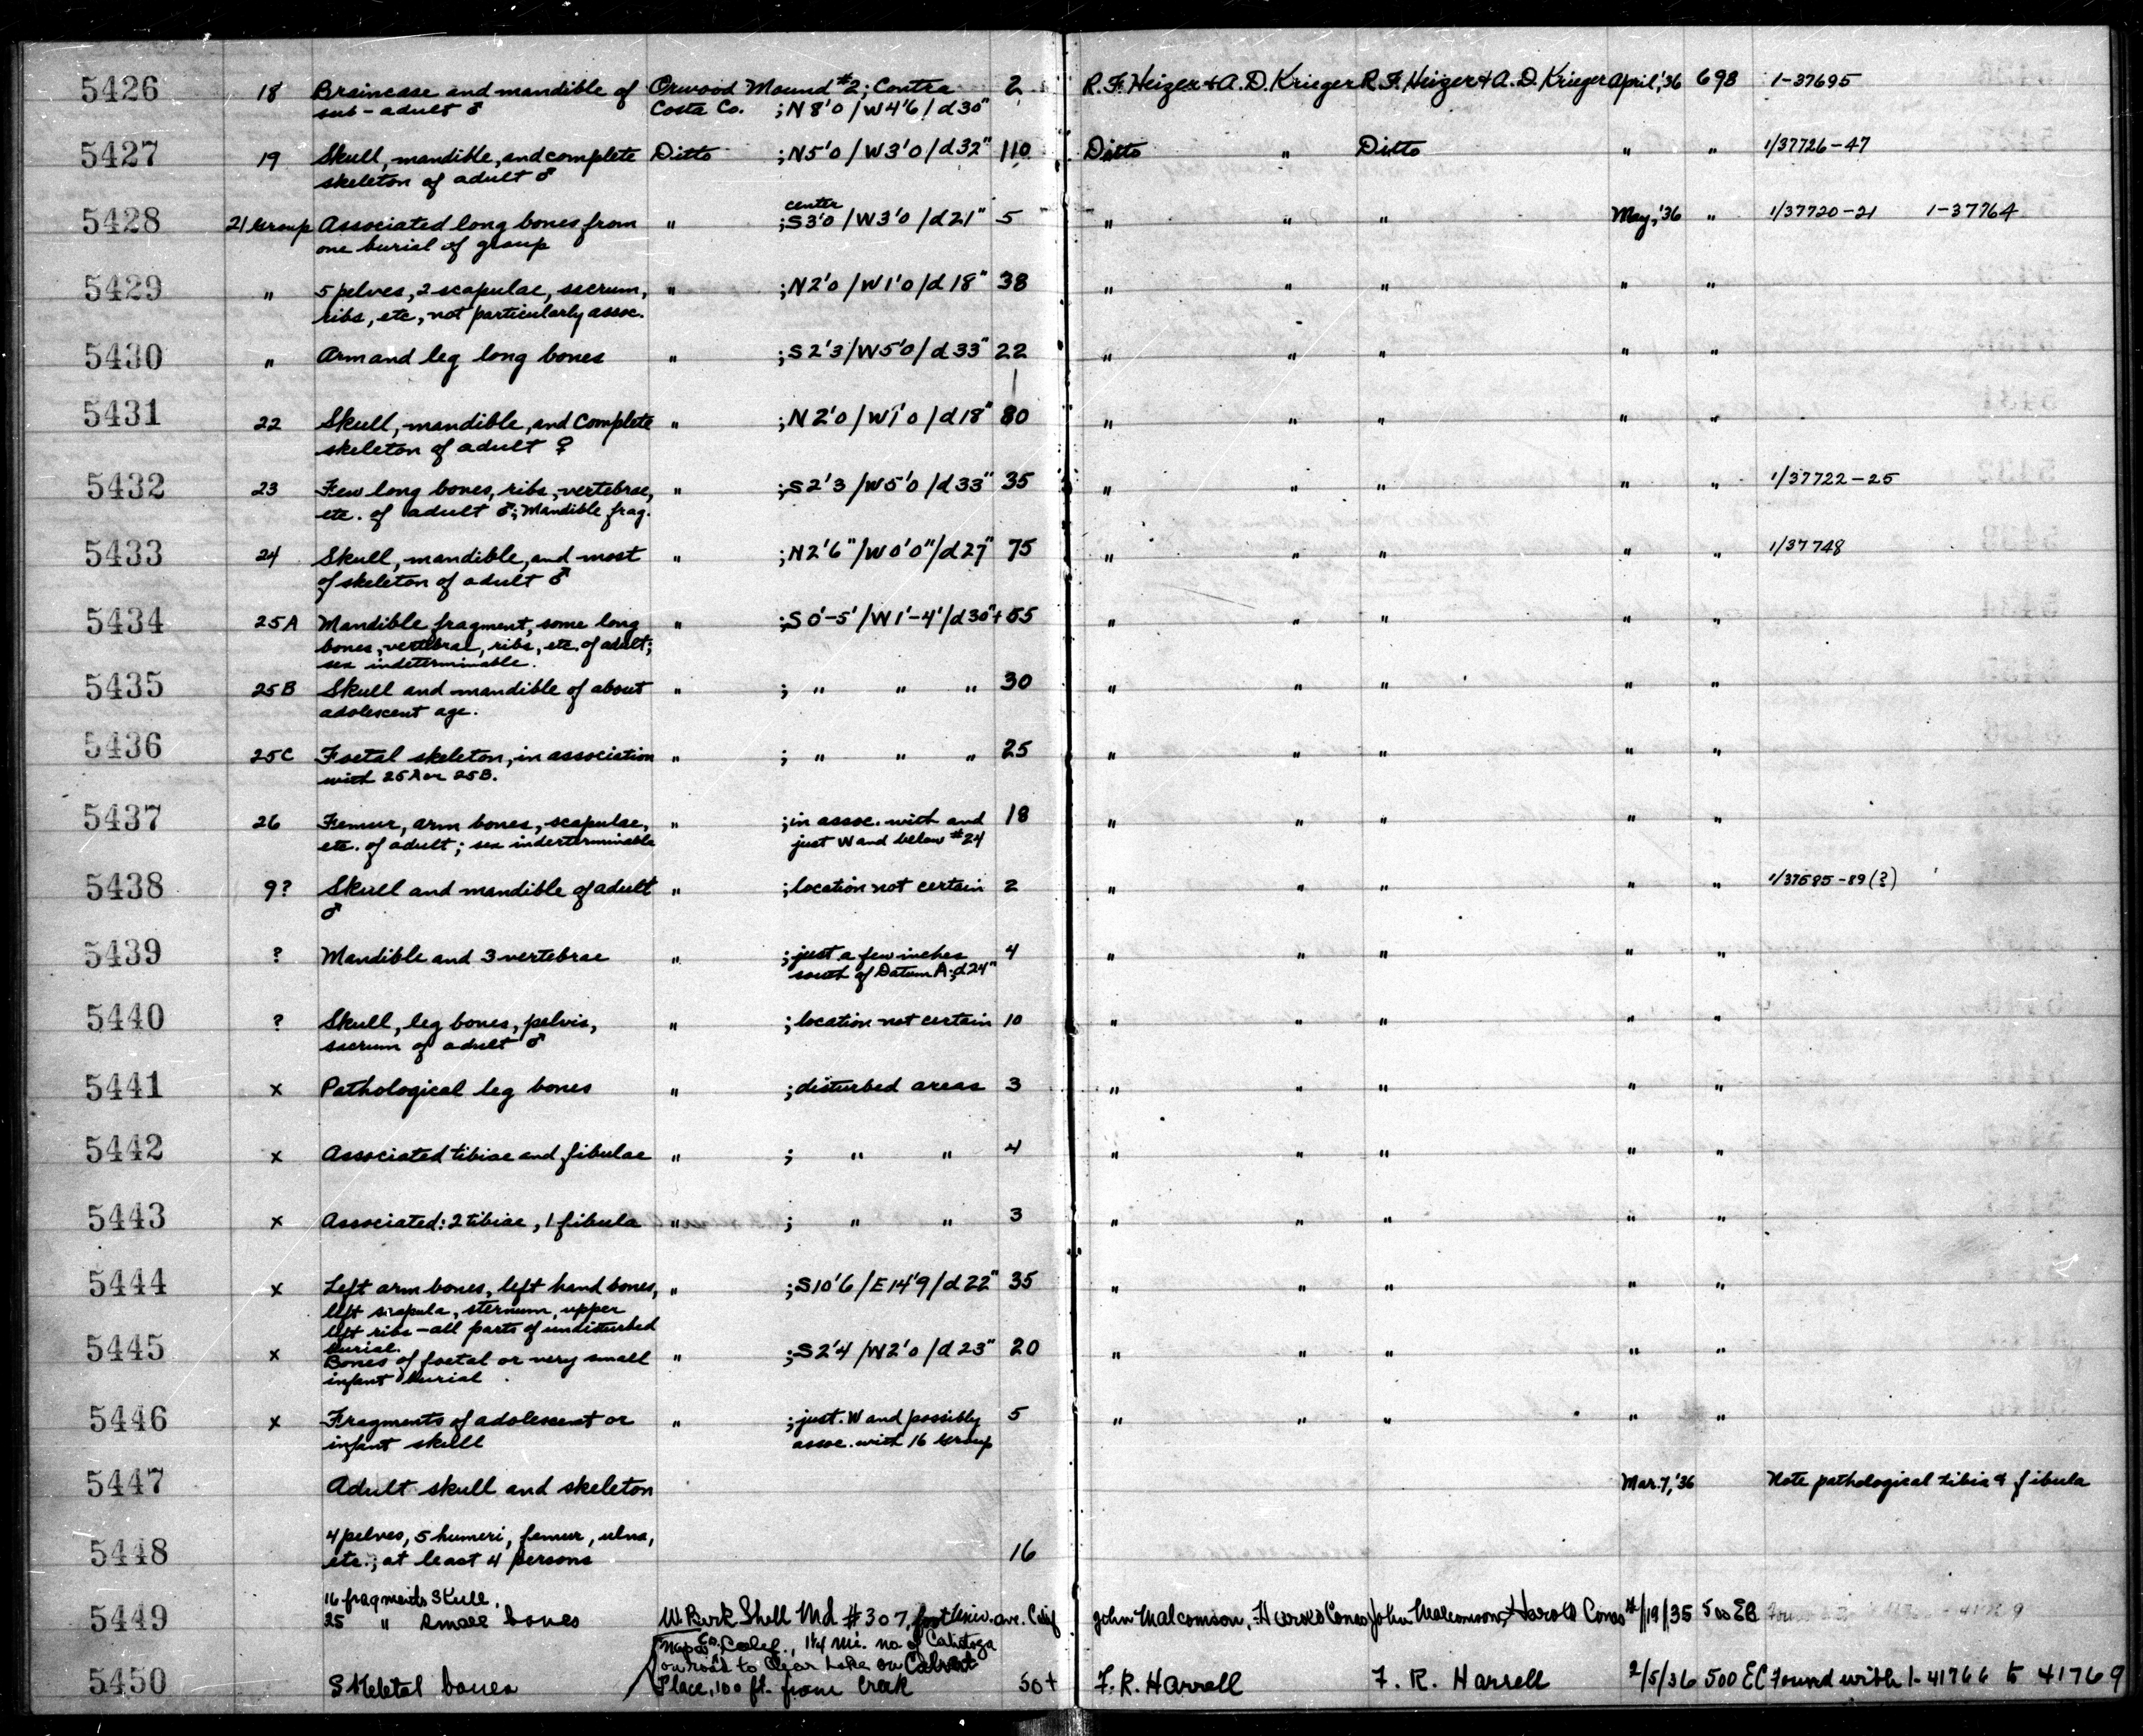 5426 18 Braincase and mandible of Orwood Mound #2; Contra 2 R.F. Heizer & A.D. Krieger R.F. Heizer & A.D. Krieger April,'36 698 1-37695
sub-adult ♂ Costa Co. ;N8'0/W4'6/d30"
5427 19 Skull, mandible, and complete Ditto ;N5'0/W3'0/d32" 110 Ditto " Ditto " " 1/37726-47
skeleton of adult ♂
center
5428 21 Group Associated long bones from " ;S3'0/W3'0/d21" 5 " " " May,'36 " 1/37720-21 1-37764
one burial of group
5429 " 5 pelves, 2 scapulae, sacrum, " ;N2'0/W1'0/d18" 38 " " " " "
ribs, etc, not particularly assoc.
5430 " Arm and leg long bones " ;S2'3/W5'0/d33" 22 " " " " "
5431 22 Skull, mandible, and complete " ;N2'0/W1'0/d18" 80 " " " " "
skeleton of adult ♀
5432 23 Few long bones, ribs, vertebrae, " ;S2'3/W5'0/d33" 35 " " " " " 1/37722-25
etc. of adult ♂; Mandible frag.
5433 24 Skull, mandible, and most " ;N2'6"/W0'0"/d27" 75 " " " " " 1/37748
of skeleton of adult ♂
5434 25A Mandible fragment, some long " ;S0'-5'/W1'-4'/d30"+ 55 " " " " "
bones, vertebrae, ribs, etc. of adult;
sex indeterminable.
5435 25B Skull and mandible of about " ; " " " 30 " " " " "
adolescent age.
5436 25C Foetal skeleton, in association " ; " " " 25 " " " " "
with 25A or 25B.
5437 26 Femur, arm bones, scapulae, " ;in assoc. with and 18 " " " " "
etc. of adult; sex inderterminable just W and below #24
5438 9? Skull and mandible of adult " ;location not certain 2 " " " " " 1/37685-89(?)
♂
5439 ? Mandible and 3 vertebrae " ;just a few inches 4 " " " " "
south of Datum A; d24"
5440 ? Skull, leg bones, pelvis, " ;location not certain 10 " " " " "
sacrum of adult ♂
5441 x Pathological leg bones " ;disturbed areas 3 " " " " "
5442 x Associated tibiae and fibulae " ; " " 4 " " " " "
5443 x Associated: 2 tibiae, 1 fibula " ; " " 3 " " " " "
5444 x Left arm bones, left hand bones, " ;S10'6/E14'9/d22" 35 " " " " "
left scapula, sternum, upper
left ribs - all parts of undisturbed
burial.
5445 x Bones of foetal or very small " ;S2'4/W2'0/d23" 20 " " " " "
infant burial
5446 x Fragments of adolescent or " ;just W and possibly 5 " " " " "
infant skull assoc. with 16 Group
5447 Adult skull and skeleton Mar.7,'36 Note pathological tibia & fibula
4 pelves, 5 humeri, femur, ulna,
5448 etc.; at least 4 persons 16
16 fragments Skull,
5449 25 " Small bones W. Berk Shell Md #307, foot Univ. ave. Calif John Malcomson, Harold Cones John Malcomson, Harold Cones /19/35 500 EB
Napa Co., Calif., 1¼ mi. no of Calistoga
on road to Clear Lake on Calvert
5450 Skeletal bones Place, 100 ft. from creek 50+ F.R. Harrell F. R. Harrell 2/5/36 500 EC Found with 1-41766 to 41769